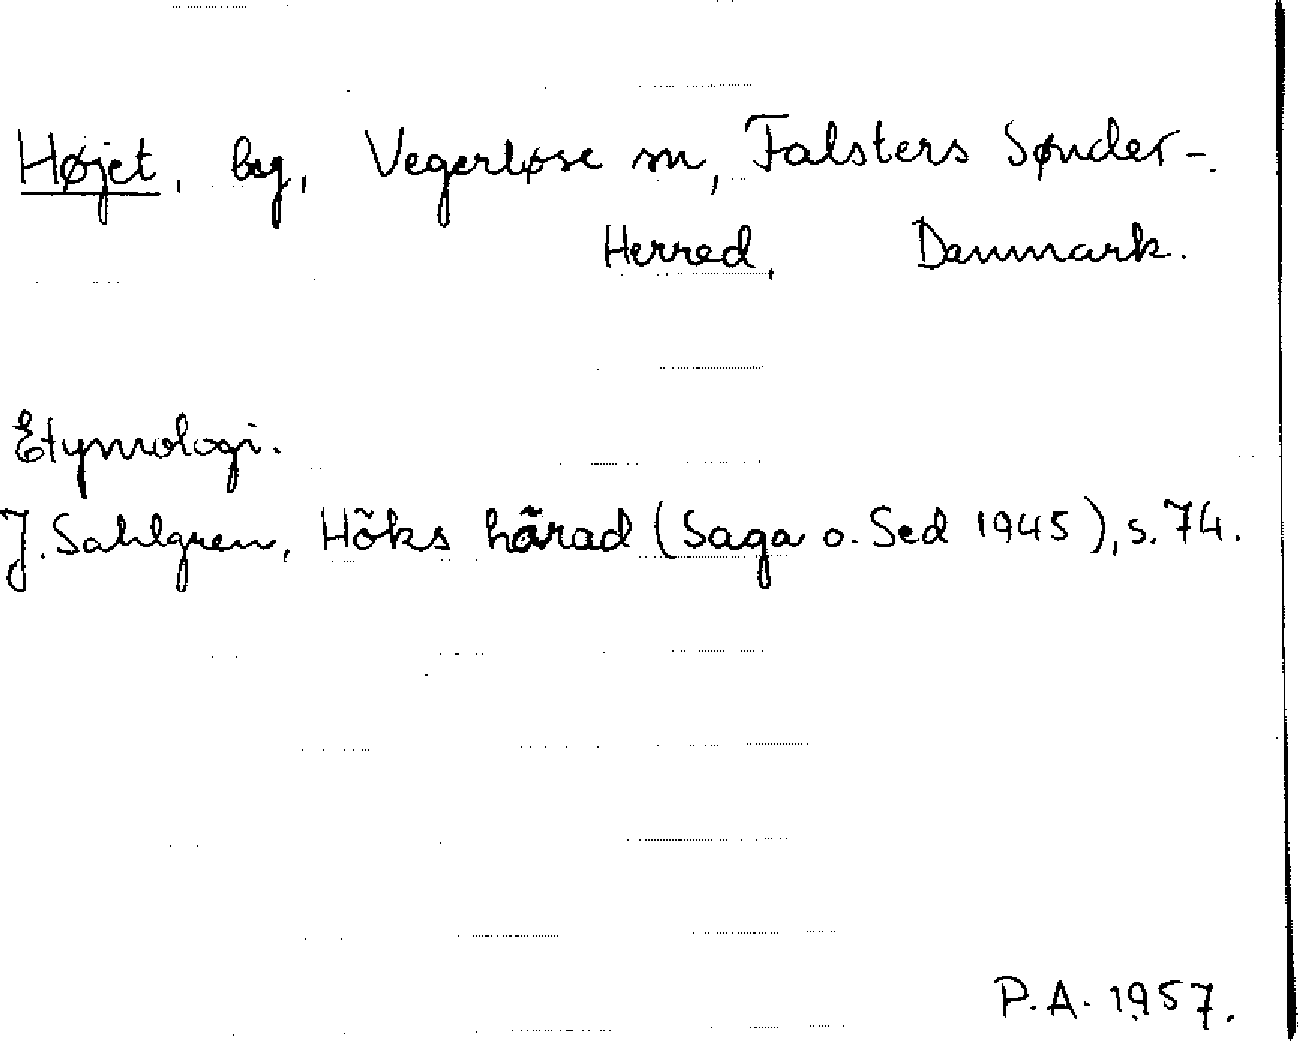 Højet, beg, Vegerløse sn, Falsters Sønder-
Herred, Danmark.
Etymologi.
J. Sahlgren, Höks härad (Saga o. Sed 1945), s. 74.
P.A. 1957.